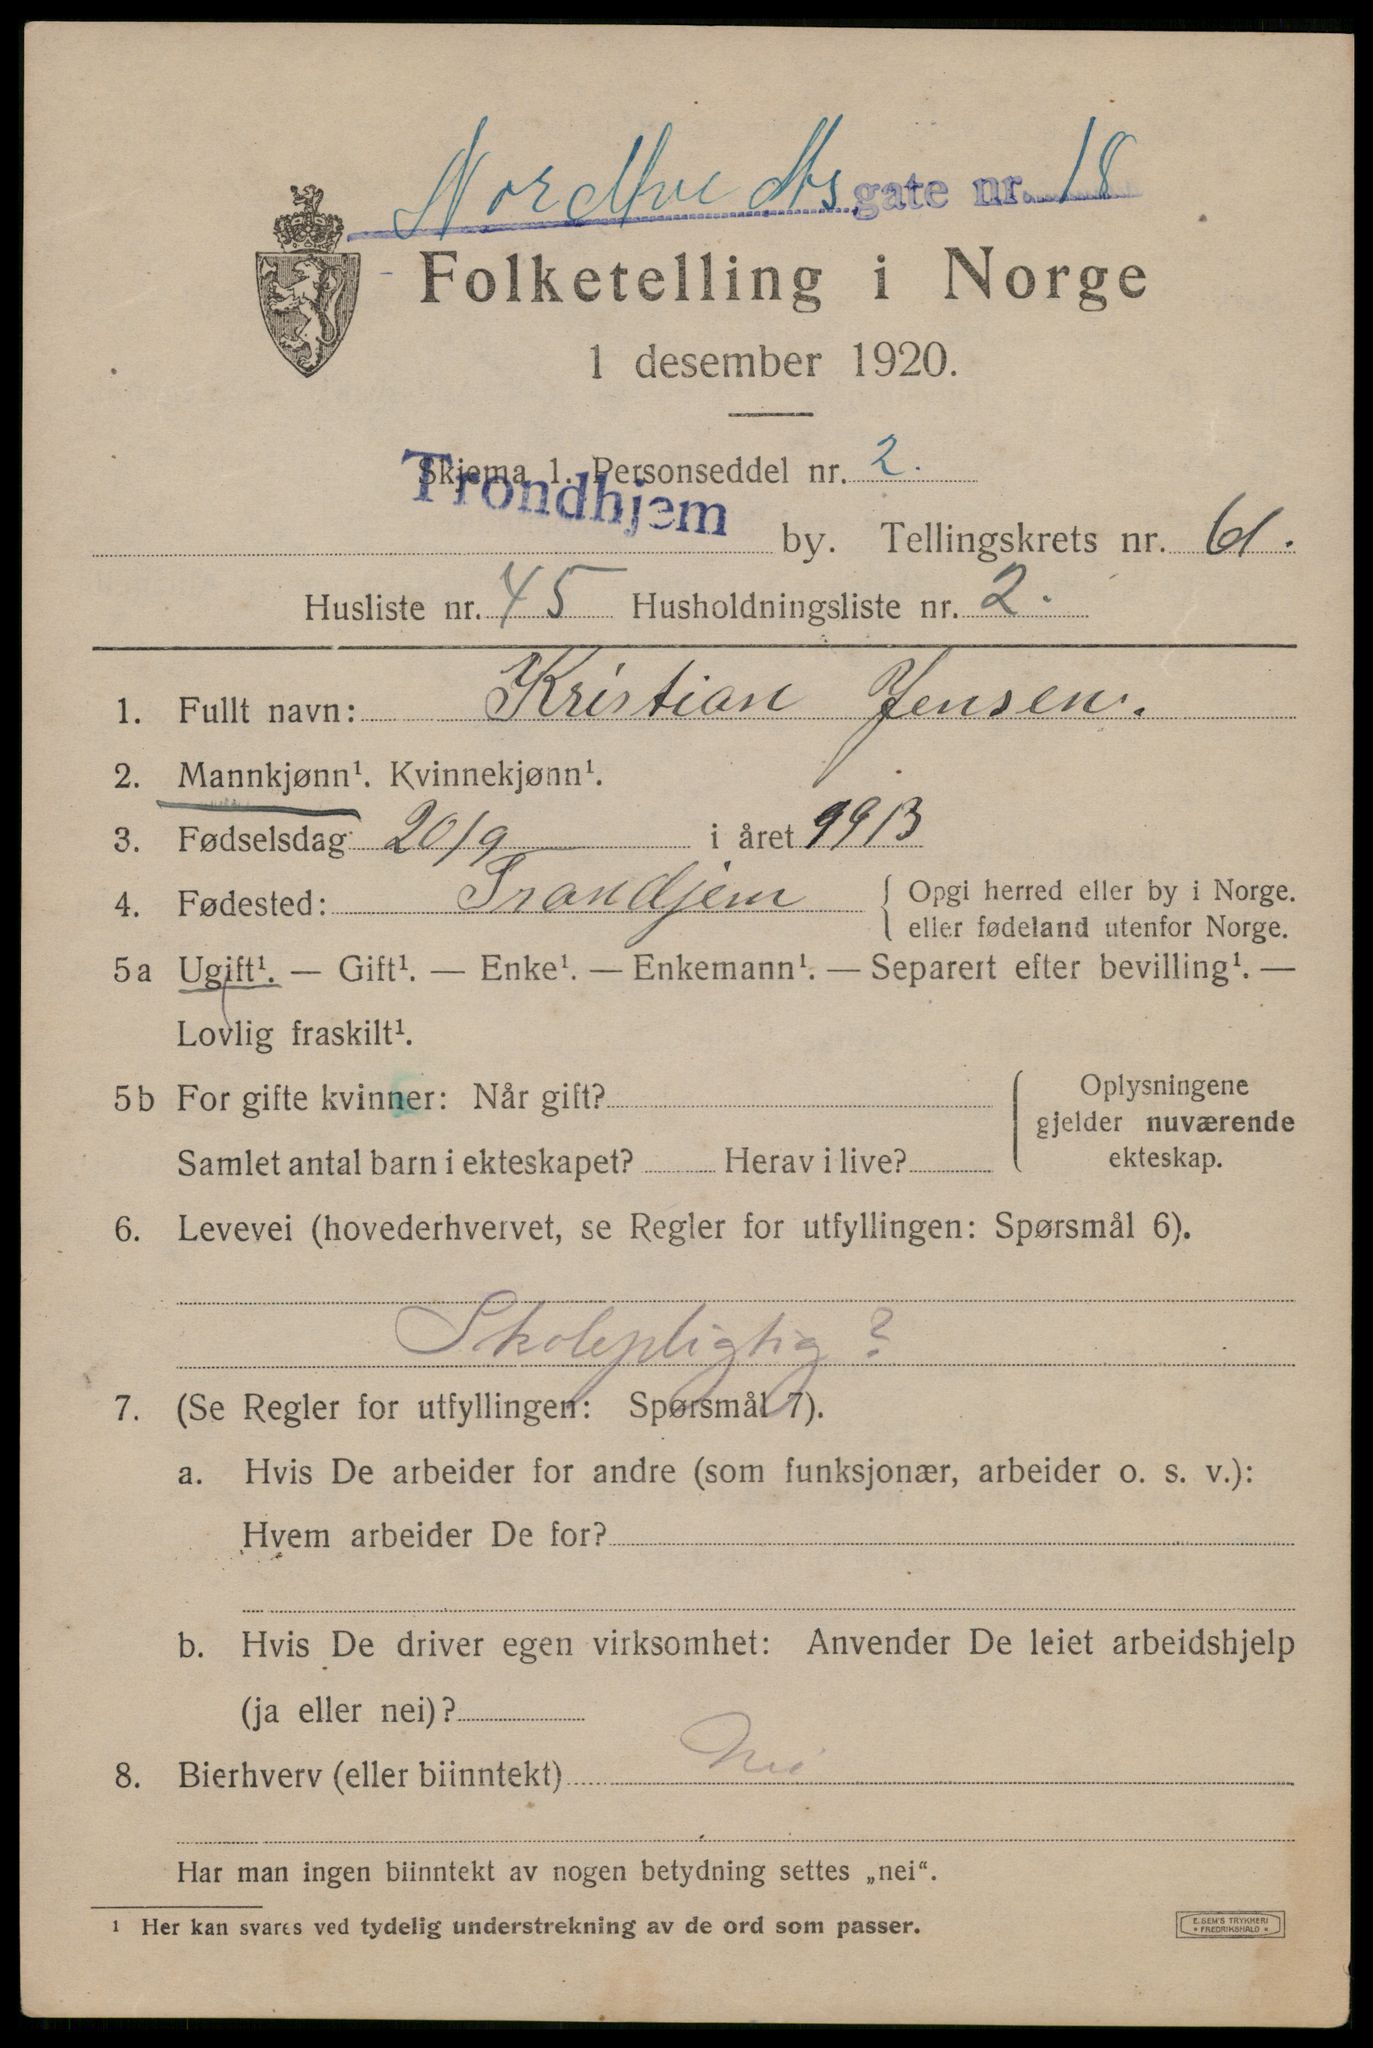 Nordtvedts gate nr. 18
Folketelling i Norge
1 desember 1920.
Skjema 1. Personseddel nr. 2.
Trondhjem by. Tellingskrets nr. 61.
Husliste nr. 45 Husholdningsliste nr. 2.
1. Fullt navn: Kristian Jensen.
2. Mannkjønn¹. Kvinnekjønn¹.
3. Fødselsdag 20/9 i året 1913
4. Fødested: Trondjem { Opgi herred eller by i Norge.
eller fødeland utenfor Norge.
5a Ugift¹. — Gift¹. — Enke¹. — Enkemann¹. — Separert efter bevilling¹. —
Lovlig fraskilt¹.
5b For gifte kvinner: Når gift?
Samlet antal barn i ekteskapet? Herav i live?
Oplysningene
gjelder nuværende
ekteskap.
6. Levevei (hovederhvervet, se Regler for utfyllingen: Spørsmål 6).
Skolepligtig?
7. (Se Regler for utfyllingen: Spørsmål 7).
a. Hvis De arbeider for andre (som funksjonær, arbeider o. s. v.):
Hvem arbeider De for?
b. Hvis De driver egen virksomhet: Anvender De leiet arbeidshjelp
(ja eller nei)?
8. Bierhverv (eller biinntekt) Nei
Har man ingen biinntekt av nogen betydning settes „nei“.
¹ Her kan svares ved tydelig understrekning av de ord som passer.
E. SEM'S TRYKKERI
* FREDRIKSHALD *